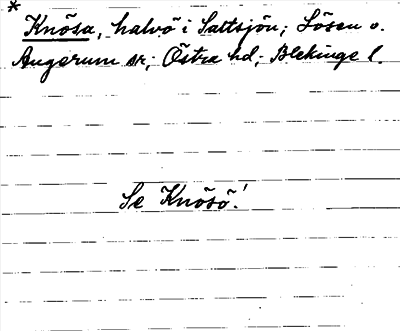 * Knösa, halvö i Saltsjön; Lösen o.
Augerum sr; Östra hd; Blekinge l.
Se Knösö!